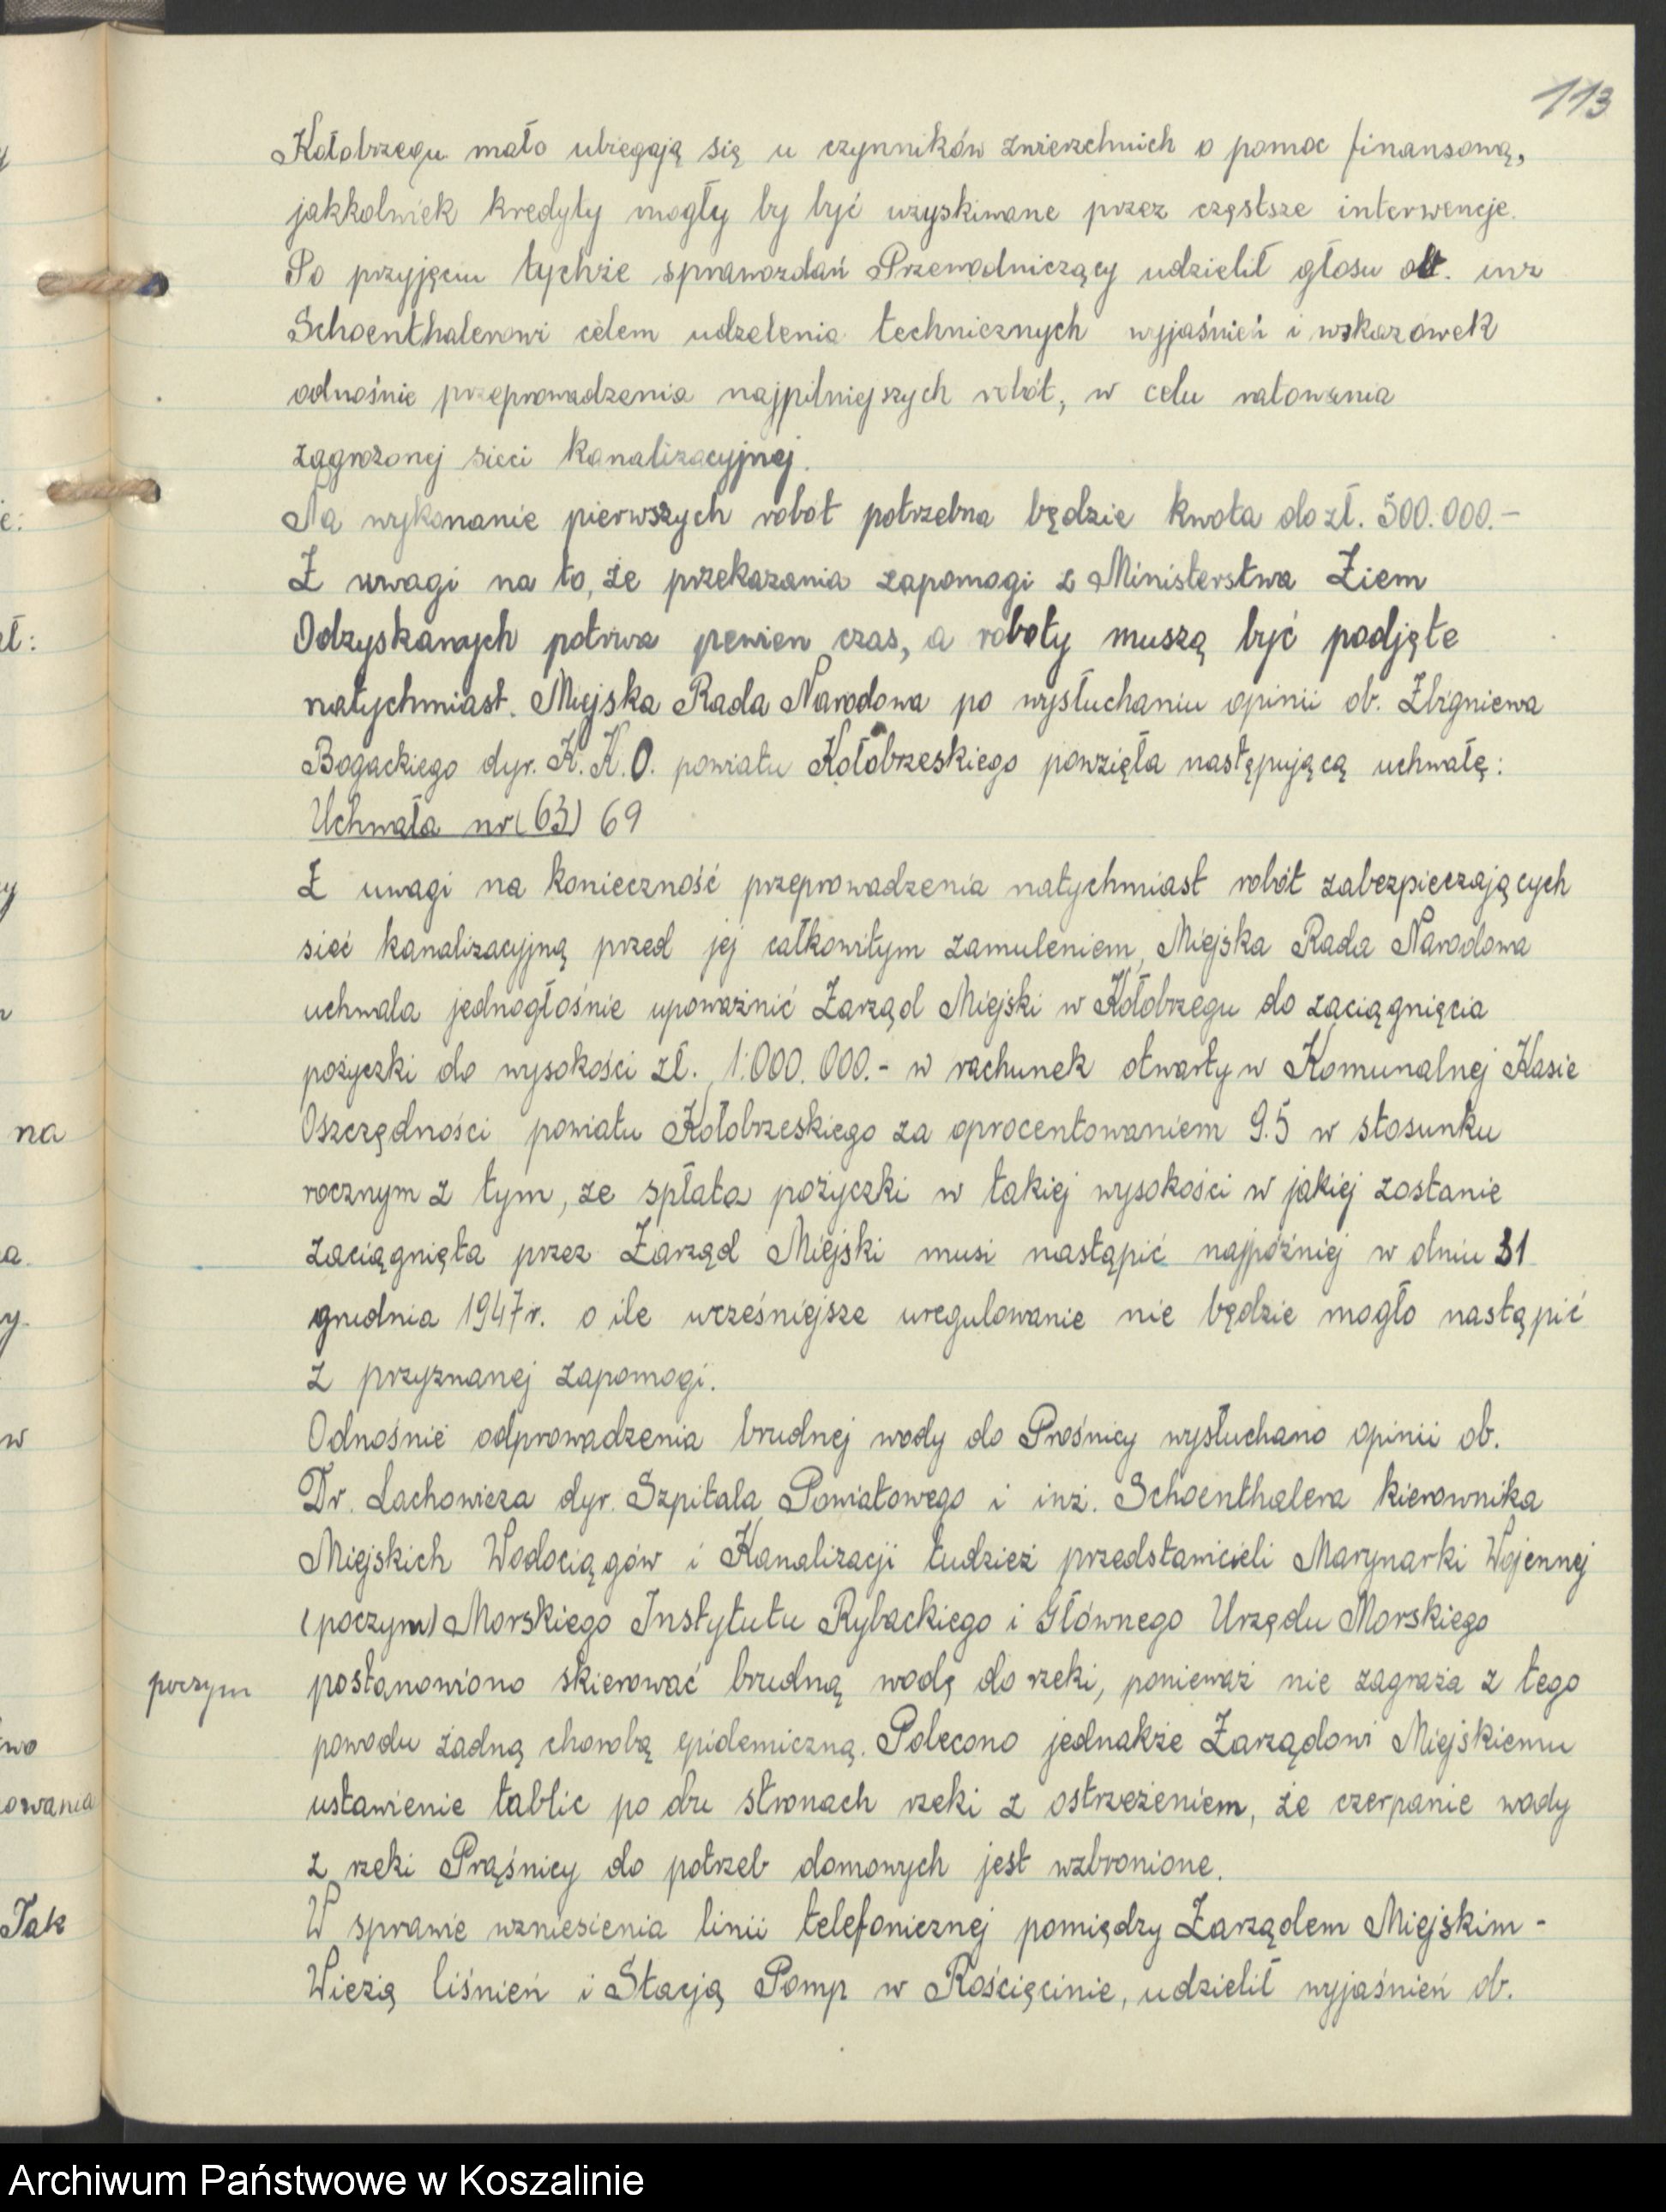 113
Kołobrzegu mało ubiegają się u czynników zwierzchnich o pomoc finansową,
jakkolwiek kredyty mogły by być uzyskiwane przez częstsze interwencje.
Po przyjęciu tychże sprawozdań Przewodniczący udzielił głosu ob. inż
Schoenthalerowi celem udzelenia technicznych wyjaśnień i wskazówek
odnośnie przeprowadzenia najpilniejszych robót, w celu ratowania
zagrożonej sieci kanalizacyjnej.
Na wykonanie pierwszych robót potrzebna będzie kwota do zł. 500.000.-
Z uwagi na to, że przekazania zapomogi z Ministerstwa Ziem
Odzyskanych potrwa pewien czas, a roboty muszą być podjęte
natychmiast. Miejska Rada Narodowa po wysłuchaniu opinii ob. Zbigniewa
Bogackiego dyr. K.K.O. powiatu Kołobrzeskiego powzięła następującą uchwałę:
Uchwała nr (63) 69
Z uwagi na konieczność przeprowadzenia natychmiast robót zabezpieczających
sieć kanalizacyjną przed jej całkowitym zamuleniem, Miejska Rada Narodowa
uchwala jednogłośnie upoważnić Zarząd Miejski w Kołobrzegu do zaciągnięcia
pożyczki do wysokości zł. 1.000.000.- w rachunek otwarty w Komunalnej Kasie
Oszczędności powiatu Kołobrzeskiego za oprocentowaniem 9.5 w stosunku
rocznym z tym, że spłata pożyczki w takiej wysokości w jakiej zostanie
zaciągnięta przez Zarząd Miejski musi nastąpić najpóźniej w dniu 31
grudnia 1947 r. o ile wcześniejsze uregulowanie nie będzie mogło nastąpić
z przyznanej zapomogi.
Odnośnie odprowadzenia brudnej wody do Prośnicy wysłuchano opinii ob.
Dr. Lachowicza dyr. Szpitala Powiatowego i inż. Schoenthalera kierownika
Miejskich Wodociągów i Kanalizacji tudzież przedstawicieli Marynarki Wojennej
(poczym) Morskiego Instytutu Rybackiego i Głównego Urzędu Morskiego
poczym postanowiono skierować brudną wodę do rzeki, ponieważ nie zagraża z tego
powodu żadną chorobą epidemiczną. Polecono jednakże Zarządowi Miejskiemu
ustawienie tablic po obu stronach rzeki z ostrzeżeniem, że czerpanie wody
z rzeki Prąśnicy do potrzeb domowych jest wzbronione.
W sprawie wzniesienia linii telefonicznej pomiędzy Zarządem Miejskim -
Wieżą liśnień i Stacją Pomp w Rościęcinie, udzielił wyjaśnień ob.
na
w
Tak
Archiwum Państwowe w Koszalinie